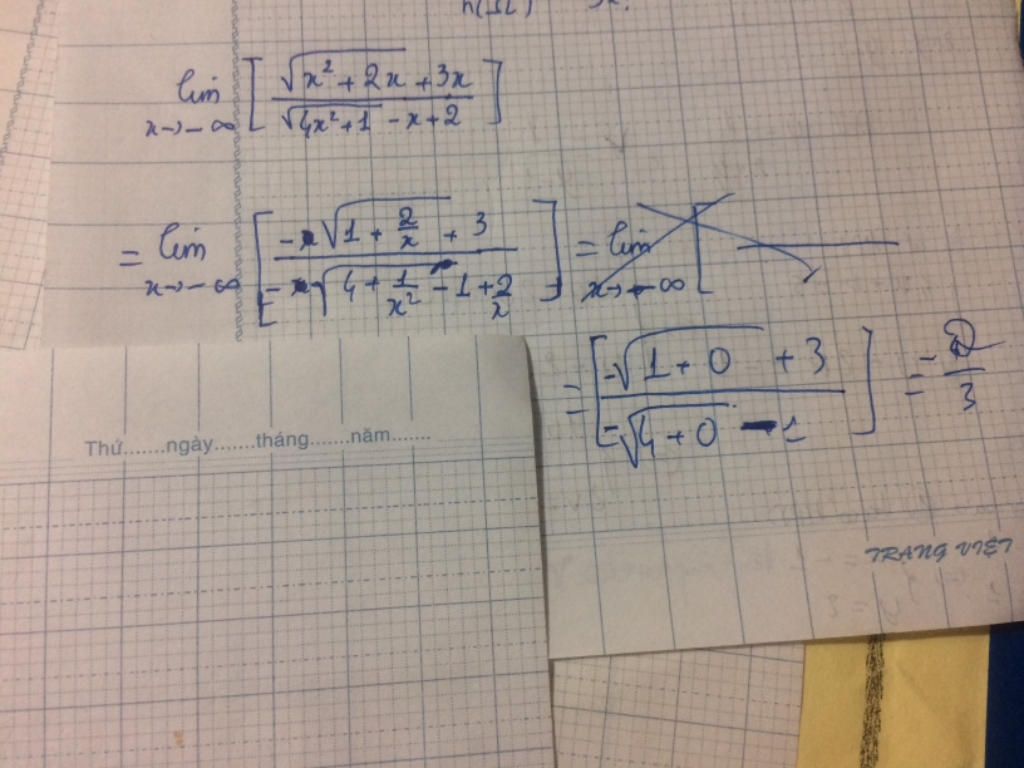 lim x→-∞ [ (√(x² + 2x) + 3x) / (√(4x²+1) - x + 2) ]
= lim x→-∞ [ (-√(1 + 2/x) + 3) / (-√(4 + 1/x²) - 1 + 2/x) ] = lim x→-∞ [
= [ (-√(1 + 0) + 3) / (-√(4 + 0) - 1) ] = -2/3
Thứ.......ngày.......tháng.......năm.......
TRANG VIỆT